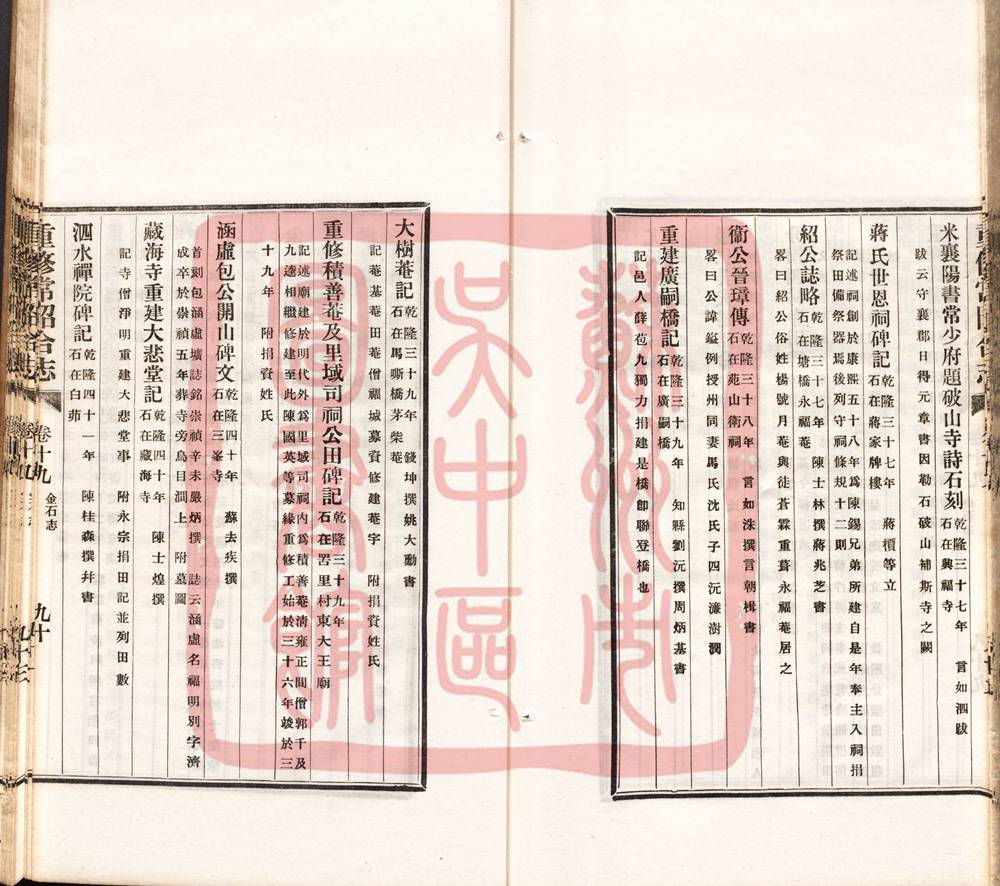 米襄陽書常少府題破山寺詩石刻 乾隆三十七年 言如泗跋 石在興福寺
跋云守襄郡日得元章書因勒石破山補斯寺之闕
蔣氏世恩祠碑記 乾隆三十七年 蔣檟等立 石在蔣家牌樓
記述祠創於康熙五十八年爲陳錫兄弟所建自是年奉主入祠捐
祭田備祭器焉後列守祠條規十二則
紹公誌略 乾隆三十七年 陳士林撰蔣兆芝書 石在塘橋永福菴
畧曰紹公俗姓楊號月菴興徒蒼霖重葺永福菴居之
衞公晉璋傳 乾隆三十八年 言如洙撰言朝楫書 石在苑山衞祠
畧曰公諱鎰例授州同妻馬氏沈氏子四沅濂澍潤
重建廣嗣橋記 乾隆三十九年 知縣劉沅撰周炳基書 石在廣嗣橋
記邑人薛苞九獨力捐建是橋卽聯登橋也
大樹菴記 乾隆三十九年 錢坤撰姚大勳書 石在馬嘶橋茅柴菴
記菴基菴田菴僧福城募資修建菴宇 附捐資姓氏
重修積善菴及里域司祠公田碑記 乾隆三十九年 石在罟里村東大王廟
記述廟建於明代外爲里域司祠内爲積善菴淸雍正間僧郭千及
九逵相繼修建至此陳國英等募緣重修工始於三十六年竣於三
十九年 附捐資姓氏
涵虛包公開山碑文 乾隆四十年 蘇去疾撰 石在三峯寺
首刻包涵虛壙誌銘崇禎辛未嚴炳撰 誌云涵虛名福明別字濟
成卒於崇禎五年葬寺旁烏目澗上 附墓圖
藏海寺重建大悲堂記 乾隆四十年 陳士煌撰 石在藏海寺
記寺僧淨明重建大悲堂事 附永宗捐田記並列田數
泗水禪院碑記 乾隆四十一年 陳桂森撰幷書 石在白茆
重修常昭合志 卷十九 金石志 九十
蘇州市
吳中區
圖書館